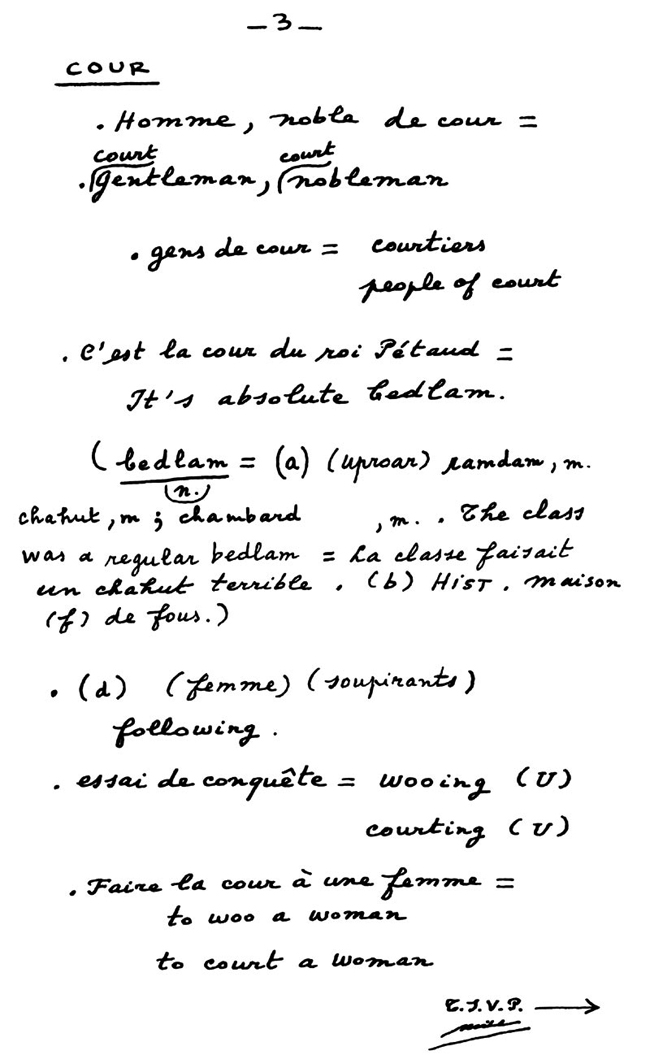 _3_
COUR
. Homme, noble de cour =
court court
. gentleman, nobleman
. gens de cour = courtiers
people of court
. C'est la cour du roi Pétaud =
It's absolute bedlam.
(bedlam = (a) (uproar) ramdam, m.
(n.)
chahut, m ; chambard , m. . The class
was a regular bedlam = La classe faisait
un chahut terrible . (b) HIST . maison
(f) de fous.)
. (d) (femme) (soupirants)
following .
. essai de conquête = wooing (U)
courting (U)
. Faire la cour à une femme =
to woo a woman
to court a woman
T.S.V.P. →